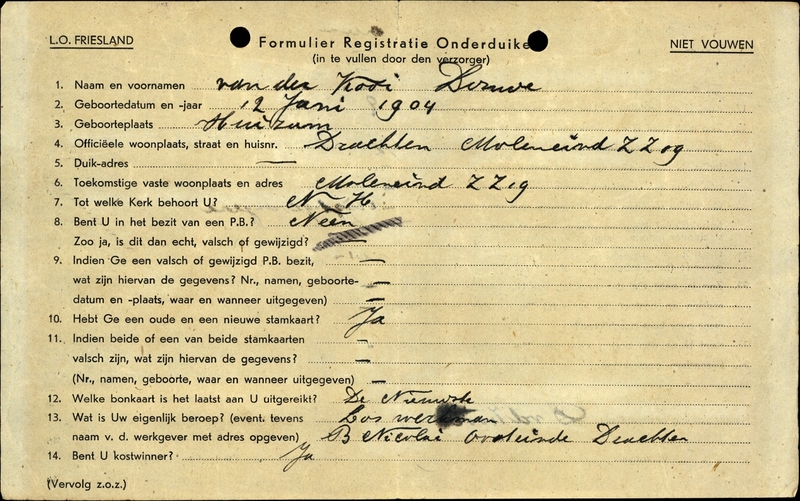 L.O. FRIESLAND
Formulier Registratie Onderduike
NIET VOUWEN
(in te vullen door den verzorger)
1. Naam en voornamen van der Kooi Douwe
2. Geboortedatum en -jaar 12 Juni 1904
3. Geboorteplaats Huizum
4. Officiëele woonplaats, straat en huisnr. Drachten Moleneind ZZ 69
5. Duik-adres —
6. Toekomstige vaste woonplaats en adres Moleneind ZZ
7. Tot welke Kerk behoort U? N H
8. Bent U in het bezit van een P.B.? Neen
Zoo ja, is dit dan echt, valsch of gewijzigd? —
9. Indien Ge een valsch of gewijzigd P.B. bezit, —
wat zijn hiervan de gegevens? Nr., namen, geboorte- —
datum en -plaats, waar en wanneer uitgegeven) —
10. Hebt Ge een oude en een nieuwe stamkaart? Ja
11. Indien beide of een van beide stamkaarten —
valsch zijn, wat zijn hiervan de gegevens? —
(Nr., namen, geboorte, waar en wanneer uitgegeven) —
12. Welke bonkaart is het laatst aan U uitgereikt? De Nieuwste
13. Wat is Uw eigenlijk beroep? (event. tevens Los werkman
naam v. d. werkgever met adres opgeven) B Nicolai Oosteinde Drachten
14. Bent U kostwinner? Ja
(Vervolg z.o.z.)